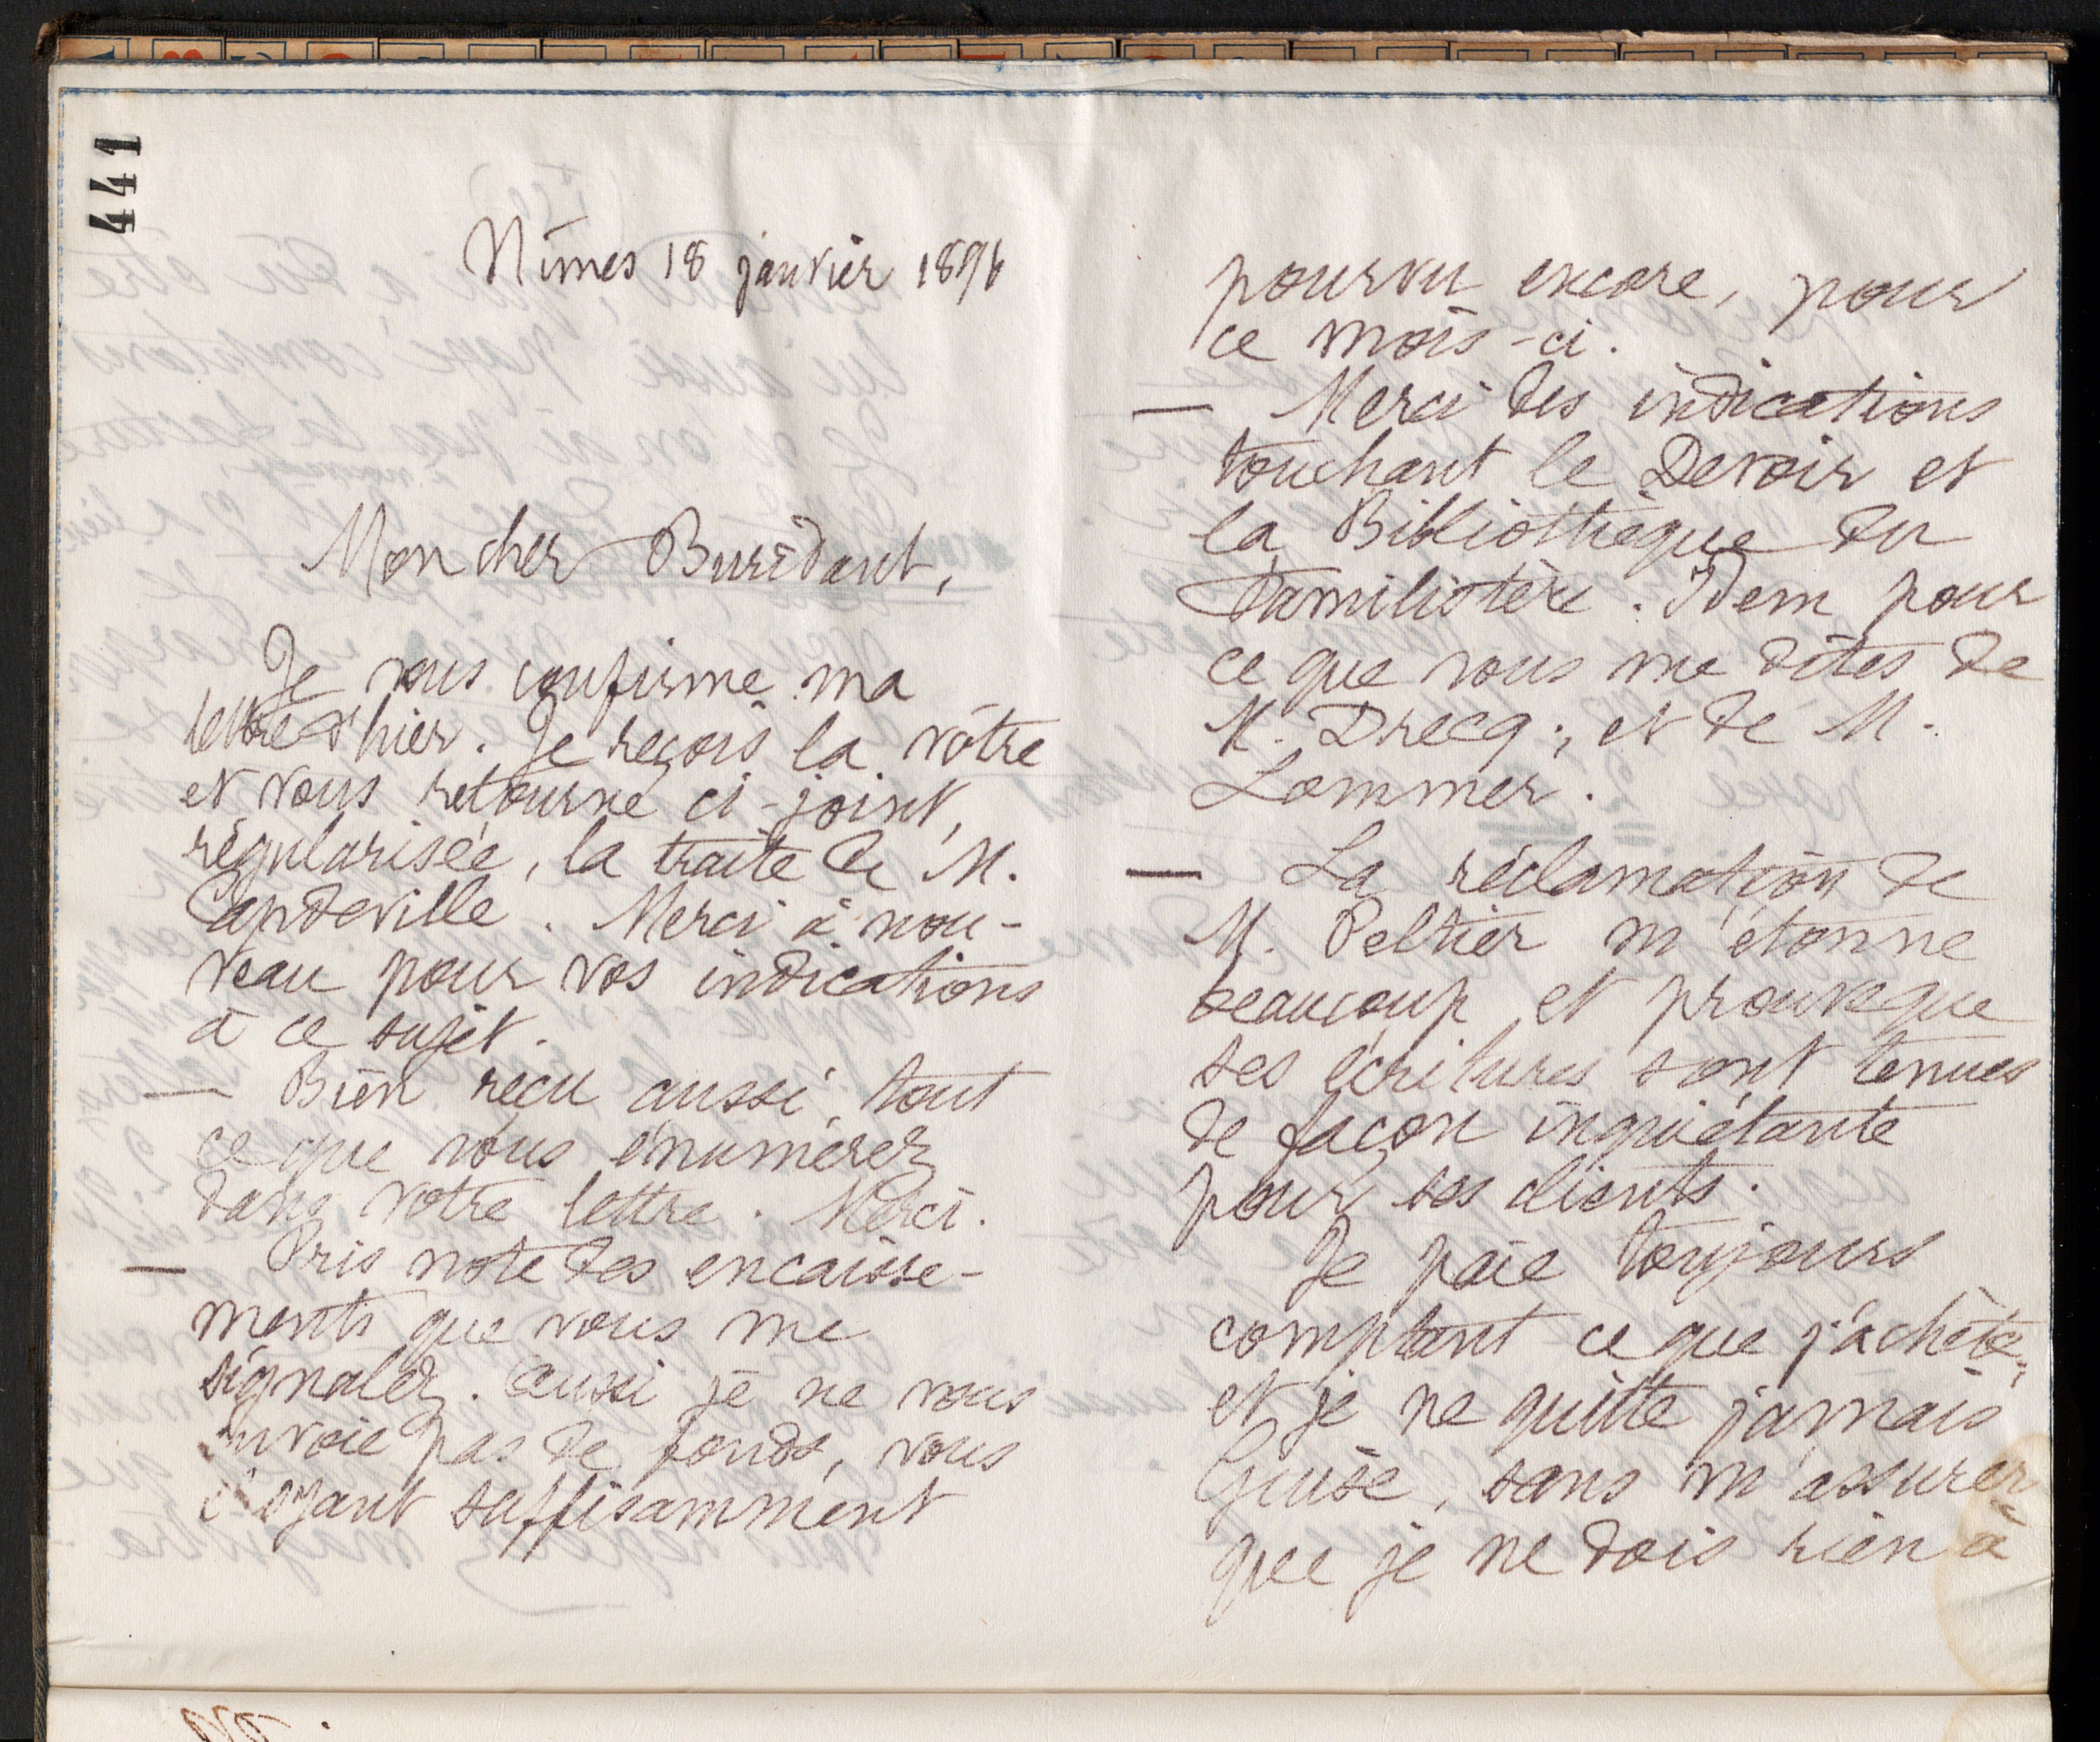 441
Nîmes 18 janvier 1896
Mon cher Buridant,
Je vous confirme ma
lettre d'hier. Je reçois la vôtre
et vous retourne ci-joint,
régularisée, la traite de M.
Capdeville. Merci à nou-
veau pour vos indications
à ce sujet.
— Bien reçu aussi, tout
ce que vous énumérez
dans votre lettre. Merci.
— Pris note des encaisse-
ments que vous me
signalez. Aussi je ne vous
envoie pas de fonds, vous
voyant suffisamment
pourvu encore, pour
ce mois-ci.
— Merci des indications
touchant le Devoir et
la Bibliothèque du
Familistère. Idem pour
ce que vous me dites de
M. Drecq; et de M.
Sommer.
— La réclamation de
M. Peltier m'étonne
beaucoup et prouve que
ses écritures sont tenues
de façon inquiétante
pour ses clients.
Je paie toujours
comptant ce que j'achète,
et je ne quitte jamais
Guise, sans m'assurer
que je ne dois rien à